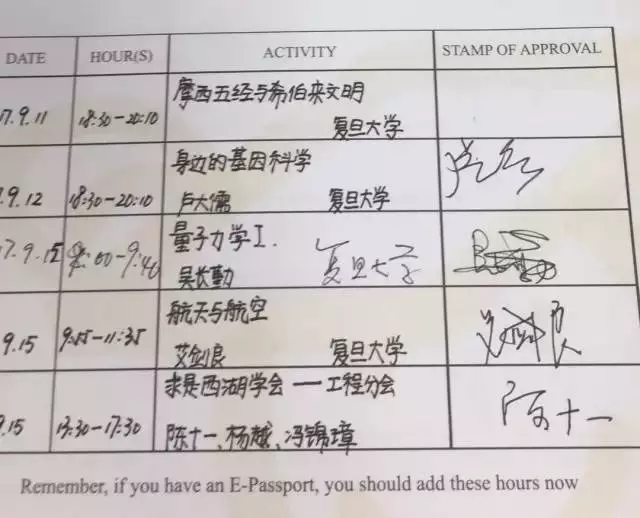 DATE HOUR(S) ACTIVITY STAMP OF APPROVAL
摩西五经与希伯来文明
17.9.11 18:30-20:10 复旦大学
身边的基因科学
.9.12 18:30-20:10 卢大儒 复旦大学
量子力学 I.
17.9.15 8:00-9:40 吴长勤 复旦大学
航天与航空
9.15 9:55-11:35 艾剑良 复旦大学
求是西湖学会 — 工程分会
.15 13:30-17:30 陈十一、杨越、冯锦璋 陈十一
Remember, if you have an E-Passport, you should add these hours now